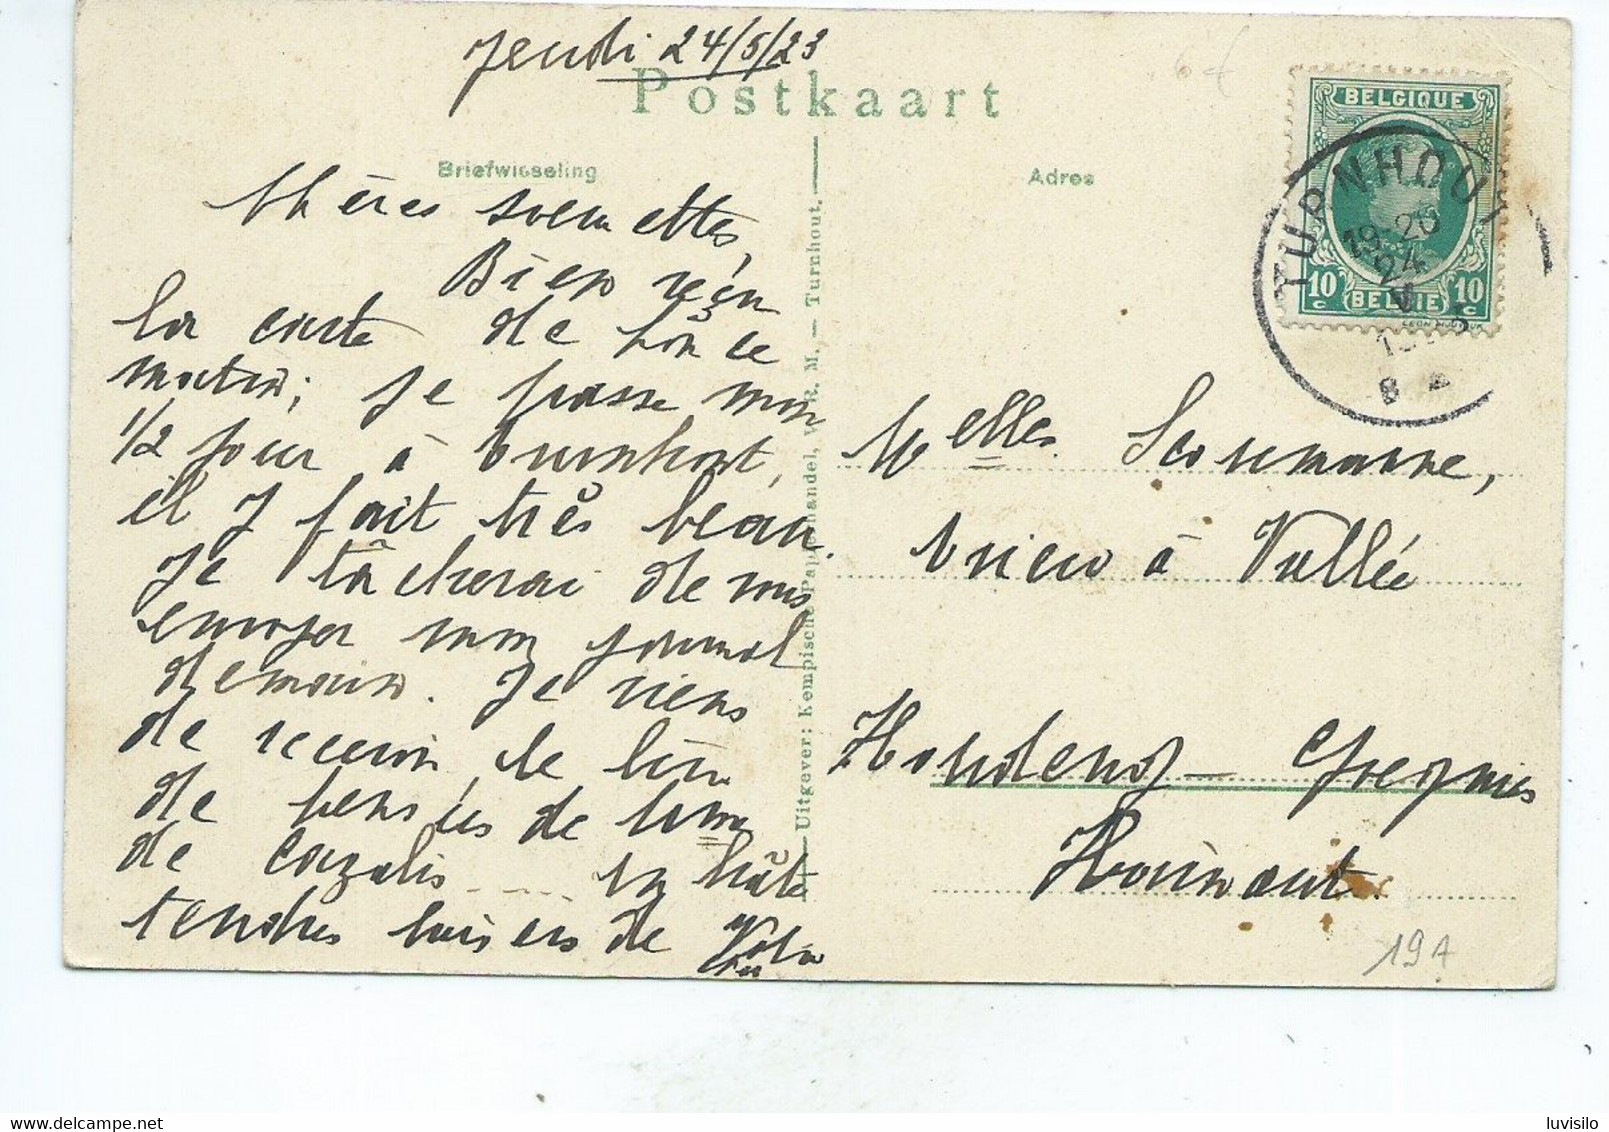 Jeudi 24/5/23
Postkaart
Briefwisseling
Adres
BELGIQUE
10 c BELGIE 10 c
TURNHOUT
19-20
24
V
Chères soeurettes,
Bien reçu
la carte de ce
matin; je passe mon
1/2 jour à Turnhout,
il y fait très beau.
Je tâcherai de vous
envoyer mon journal
demain. Je viens
de recevoir le livre
de pensées de
de Cazalis en hâte
tendres baisers de
Uitgever: Kempische Papierhandel, W. R. M. — Turnhout.
Melles Scoumanne,
Trieu à Vallée
Houdeng-Goegnies
Hainaut.
19A
luvisilo